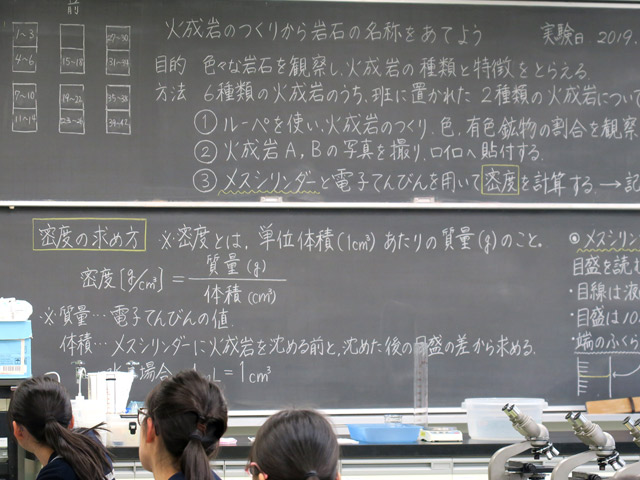 前
1~3
4~6
7~10
11~14
15~18
19~22
31~34
35~38
39~42
火成岩のつくりから岩石の名称をあてよう
実験日 2019.
目的 色々な岩石を観察し、火成岩の種類と特徴をとらえる.
方法 6種類の火成岩のうち、班に置かれた 2種類の火成岩につい
① ルーペを使い、火成岩のつくり、色、有色鉱物の割合を観察
② 火成岩A,Bの写真を撮り、ロイロへ貼付する.
③ メスシリンダーと電子てんびんを用いて密度を計算する→記
密度の求め方 ※密度とは、単位体積(1cm³)あたりの質量(g)のこと。
密度[g/cm³] = 質量(g)
体積(cm³)
※質量…電子てんびんの値.
体積…メスシリンダーに火成岩を沈める前と、沈めた後の目盛の差から求める.
場合
L=1cm³
メスシリン
目盛を読む
・目線は液
・目盛は10
・端のふくら